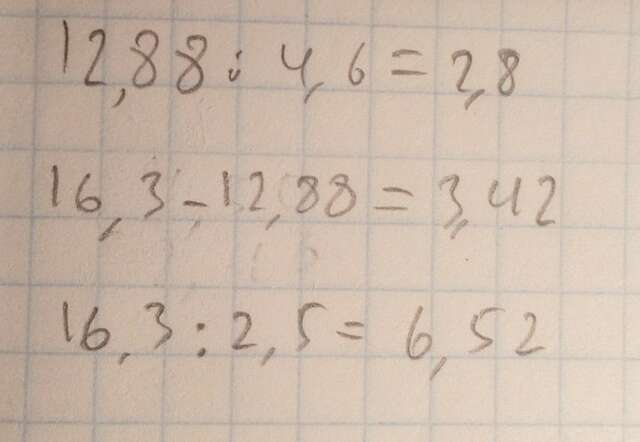 12,88 : 4,6 = 2,8
16,3 - 12,88 = 3,42
16,3 : 2,5 = 6,52